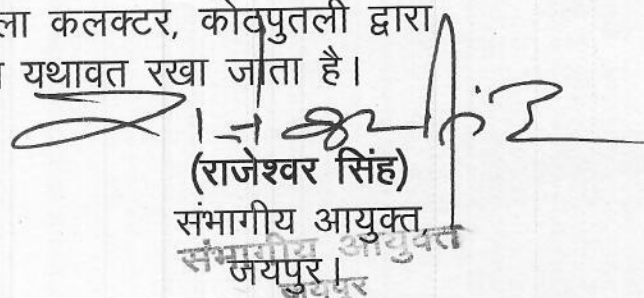 ला कलक्टर, कोटपुतली द्वारा
यथावत रखा जाता है।
(राजेश्वर सिंह)
संभागीय आयुक्त,
संभागीय आयुक्त
जयपुर।
जयपुर